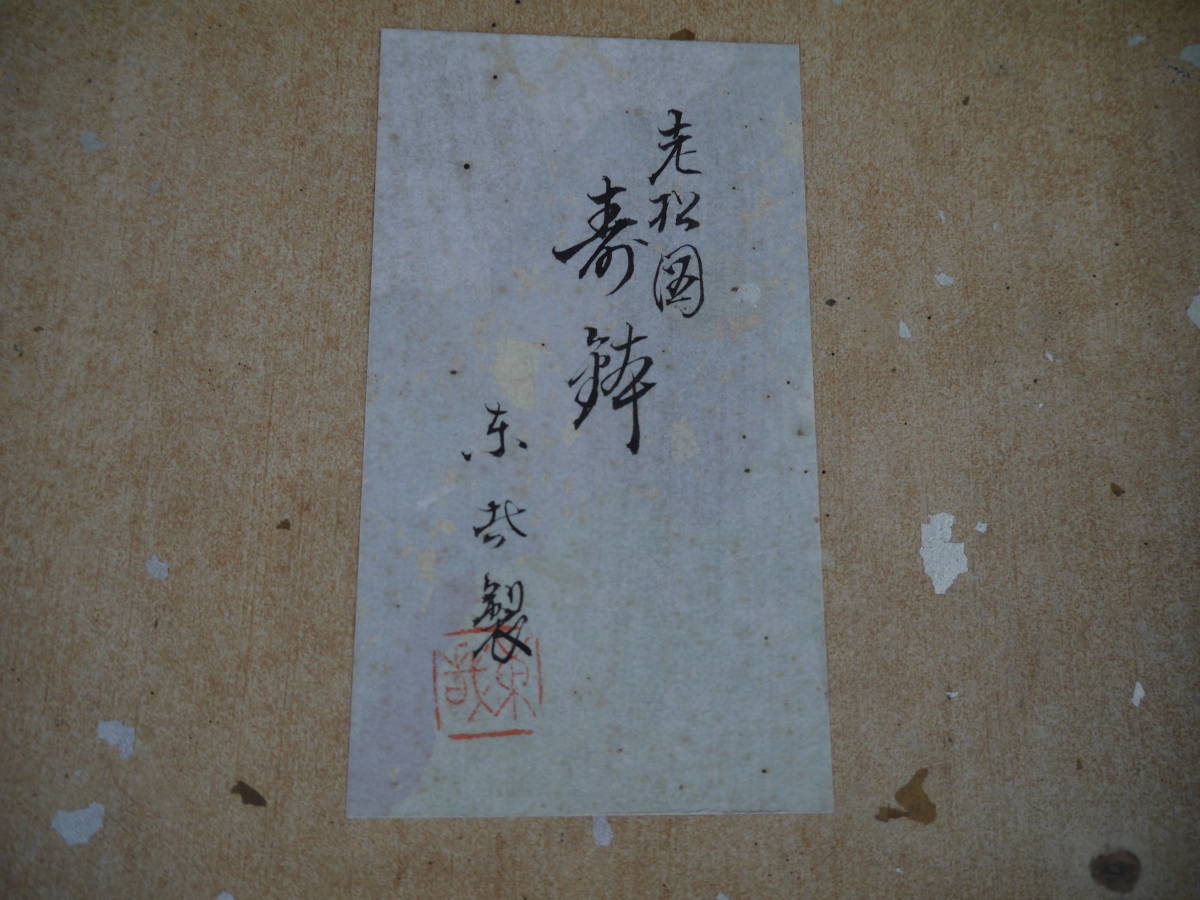 老松図
寿鉢
東哉製
東哉